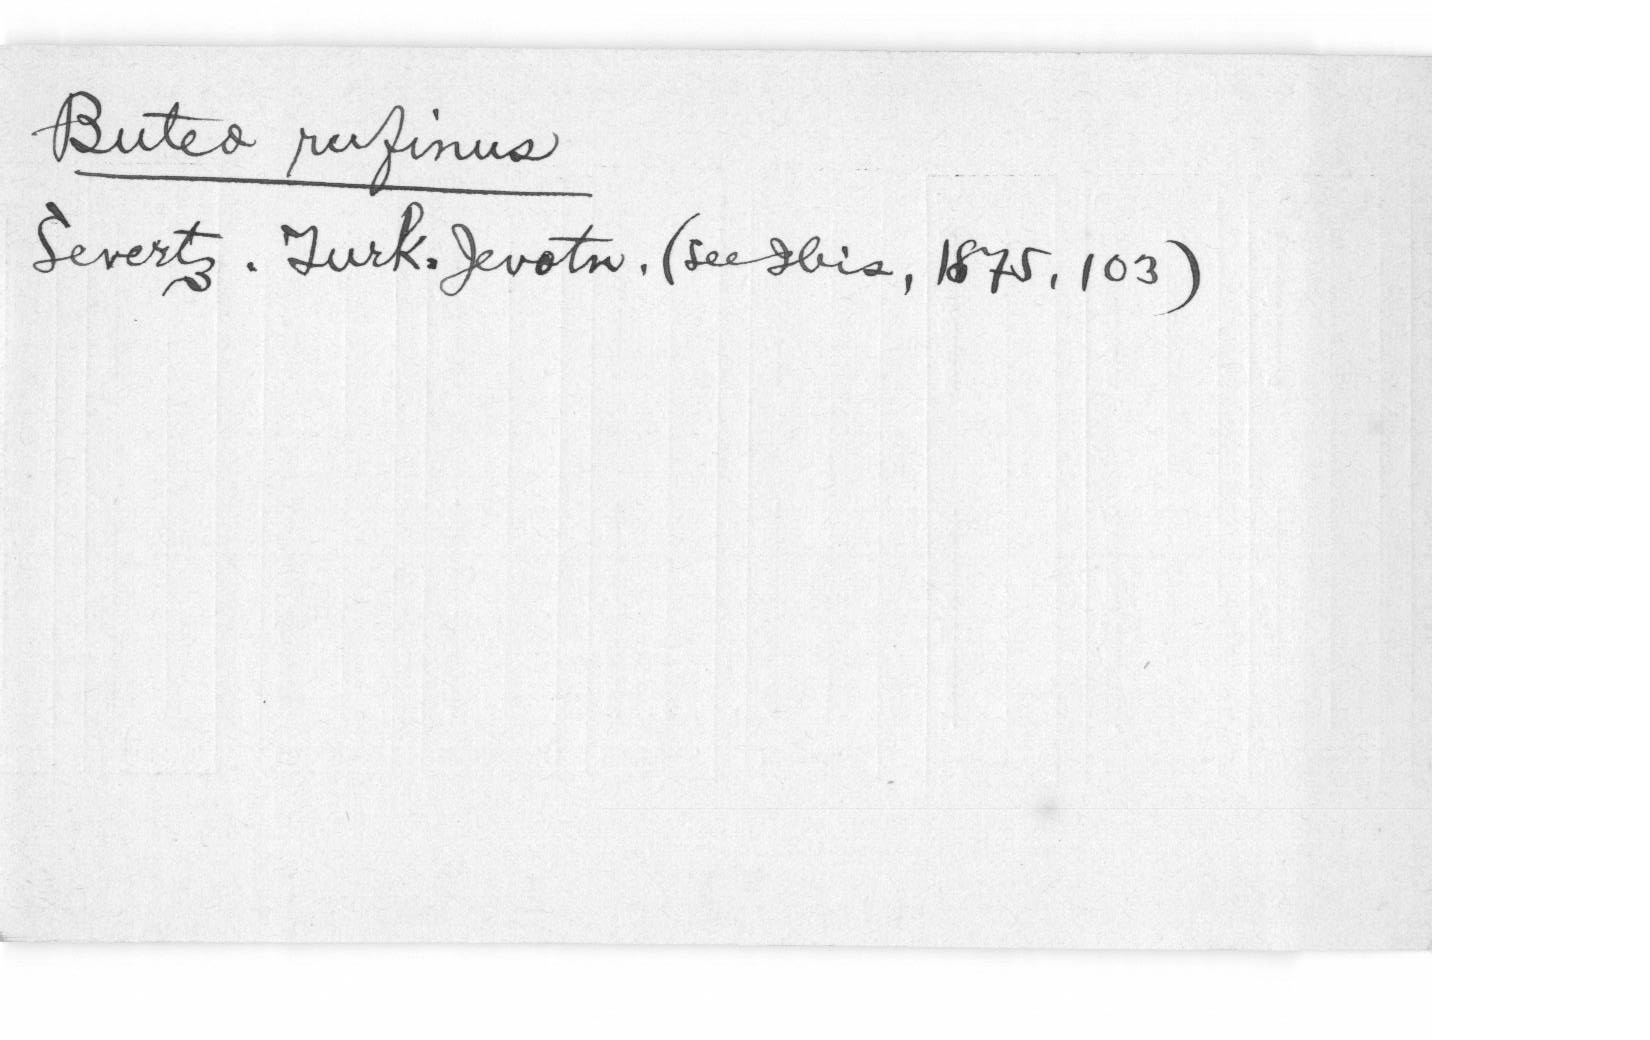 Buteo rufinus
Severtz. Turk. Jevotn. (see Ibis, 1875, 103)